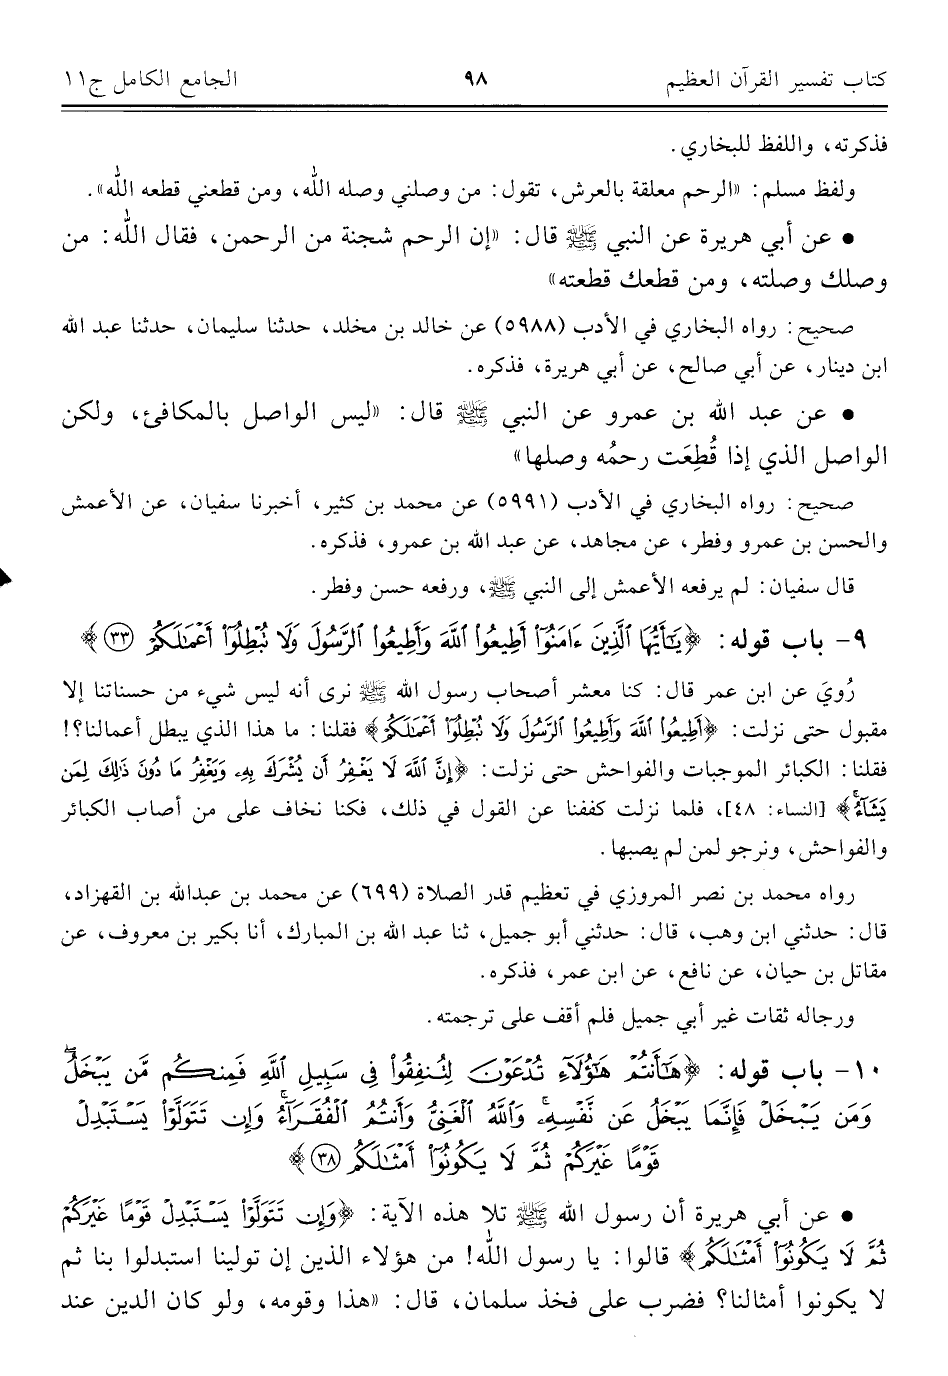 كتاب تفسير القرآن العظيم ٩٨ الجامع الكامل ج١١
فذكرته، واللفظ للبخاري.
ولفظ مسلم: «الرحم معلقة بالعرش، تقول: من وصلني وصله الله، ومن قطعني قطعه الله».
● عن أبي هريرة عن النبي ﷺ قال: «إن الرحم شجنة من الرحمن، فقال الله: من
وصلك وصلته، ومن قطعك قطعته»
صحيح: رواه البخاري في الأدب (٥٩٨٨) عن خالد بن مخلد، حدثنا سليمان، حدثنا عبد الله
ابن دينار، عن أبي صالح، عن أبي هريرة، فذكره.
● عن عبد الله بن عمرو عن النبي ﷺ قال: «ليس الواصل بالمكافئ، ولكن
الواصل الذي إذا قُطِعَت رحمُه وصلها»
صحيح: رواه البخاري في الأدب (٥٩٩١) عن محمد بن كثير، أخبرنا سفيان، عن الأعمش
والحسن بن عمرو وفطر، عن مجاهد، عن عبد الله بن عمرو، فذكره.
قال سفيان: لم يرفعه الأعمش إلى النبي ﷺ، ورفعه حسن وفطر.
٩- باب قوله: ﴿يَٰٓأَيُّهَا ٱلَّذِينَ ءَامَنُوٓا۟ أَطِيعُوا۟ ٱللَّهَ وَأَطِيعُوا۟ ٱلرَّسُولَ وَلَا تُبْطِلُوٓا۟ أَعْمَٰلَكُمْ ٣٣﴾
رُويَ عن ابن عمر قال: كنا معشر أصحاب رسول الله ﷺ نرى أنه ليس شيء من حسناتنا إلا
مقبول حتى نزلت: ﴿أَطِيعُوا۟ ٱللَّهَ وَأَطِيعُوا۟ ٱلرَّسُولَ وَلَا تُبْطِلُوٓا۟ أَعْمَٰلَكُمْ﴾ فقلنا: ما هذا الذي يبطل أعمالنا؟!
فقلنا: الكبائر الموجبات والفواحش حتى نزلت: ﴿إِنَّ ٱللَّهَ لَا يَغْفِرُ أَن يُشْرَكَ بِهِۦ وَيَغْفِرُ مَا دُونَ ذَٰلِكَ لِمَن
يَشَآءُ﴾ [النساء: ٤٨]، فلما نزلت كففنا عن القول في ذلك، فكنا نخاف على من أصاب الكبائر
والفواحش، ونرجو لمن لم يصبها.
رواه محمد بن نصر المروزي في تعظيم قدر الصلاة (٦٩٩) عن محمد بن عبدالله بن القهزاد،
قال: حدثني ابن وهب، قال: حدثني أبو جميل، ثنا عبد الله بن المبارك، أنا بكير بن معروف، عن
مقاتل بن حيان، عن نافع، عن ابن عمر، فذكره.
ورجاله ثقات غير أبي جميل فلم أقف على ترجمته.
١٠- باب قوله: ﴿هَٰٓأَنتُمْ هَٰٓؤُلَآءِ تُدْعَوْنَ لِتُنفِقُوا۟ فِى سَبِيلِ ٱللَّهِ فَمِنكُم مَّن يَبْخَلُ ۖ
وَمَن يَبْخَلْ فَإِنَّمَا يَبْخَلُ عَن نَّفْسِهِۦ ۚ وَٱللَّهُ ٱلْغَنِىُّ وَأَنتُمُ ٱلْفُقَرَآءُ ۚ وَإِن تَتَوَلَّوْا۟ يَسْتَبْدِلْ
قَوْمًا غَيْرَكُمْ ثُمَّ لَا يَكُونُوٓا۟ أَمْثَٰلَكُم ٣٨﴾
● عن أبي هريرة أن رسول الله ﷺ تلا هذه الآية: ﴿وَإِن تَتَوَلَّوْا۟ يَسْتَبْدِلْ قَوْمًا غَيْرَكُمْ
ثُمَّ لَا يَكُونُوٓا۟ أَمْثَٰلَكُم﴾ قالوا: يا رسول الله! من هؤلاء الذين إن تولينا استبدلوا بنا ثم
لا يكونوا أمثالنا؟ فضرب على فخذ سلمان، قال: «هذا وقومه، ولو كان الدين عند